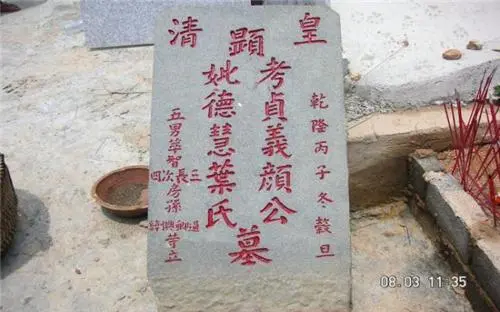 皇顯清
乾隆丙子冬穀旦
考貞義顏公
妣德慧葉氏
墓
五男萃智
三長次四
房孫
等立
08.03 11:35